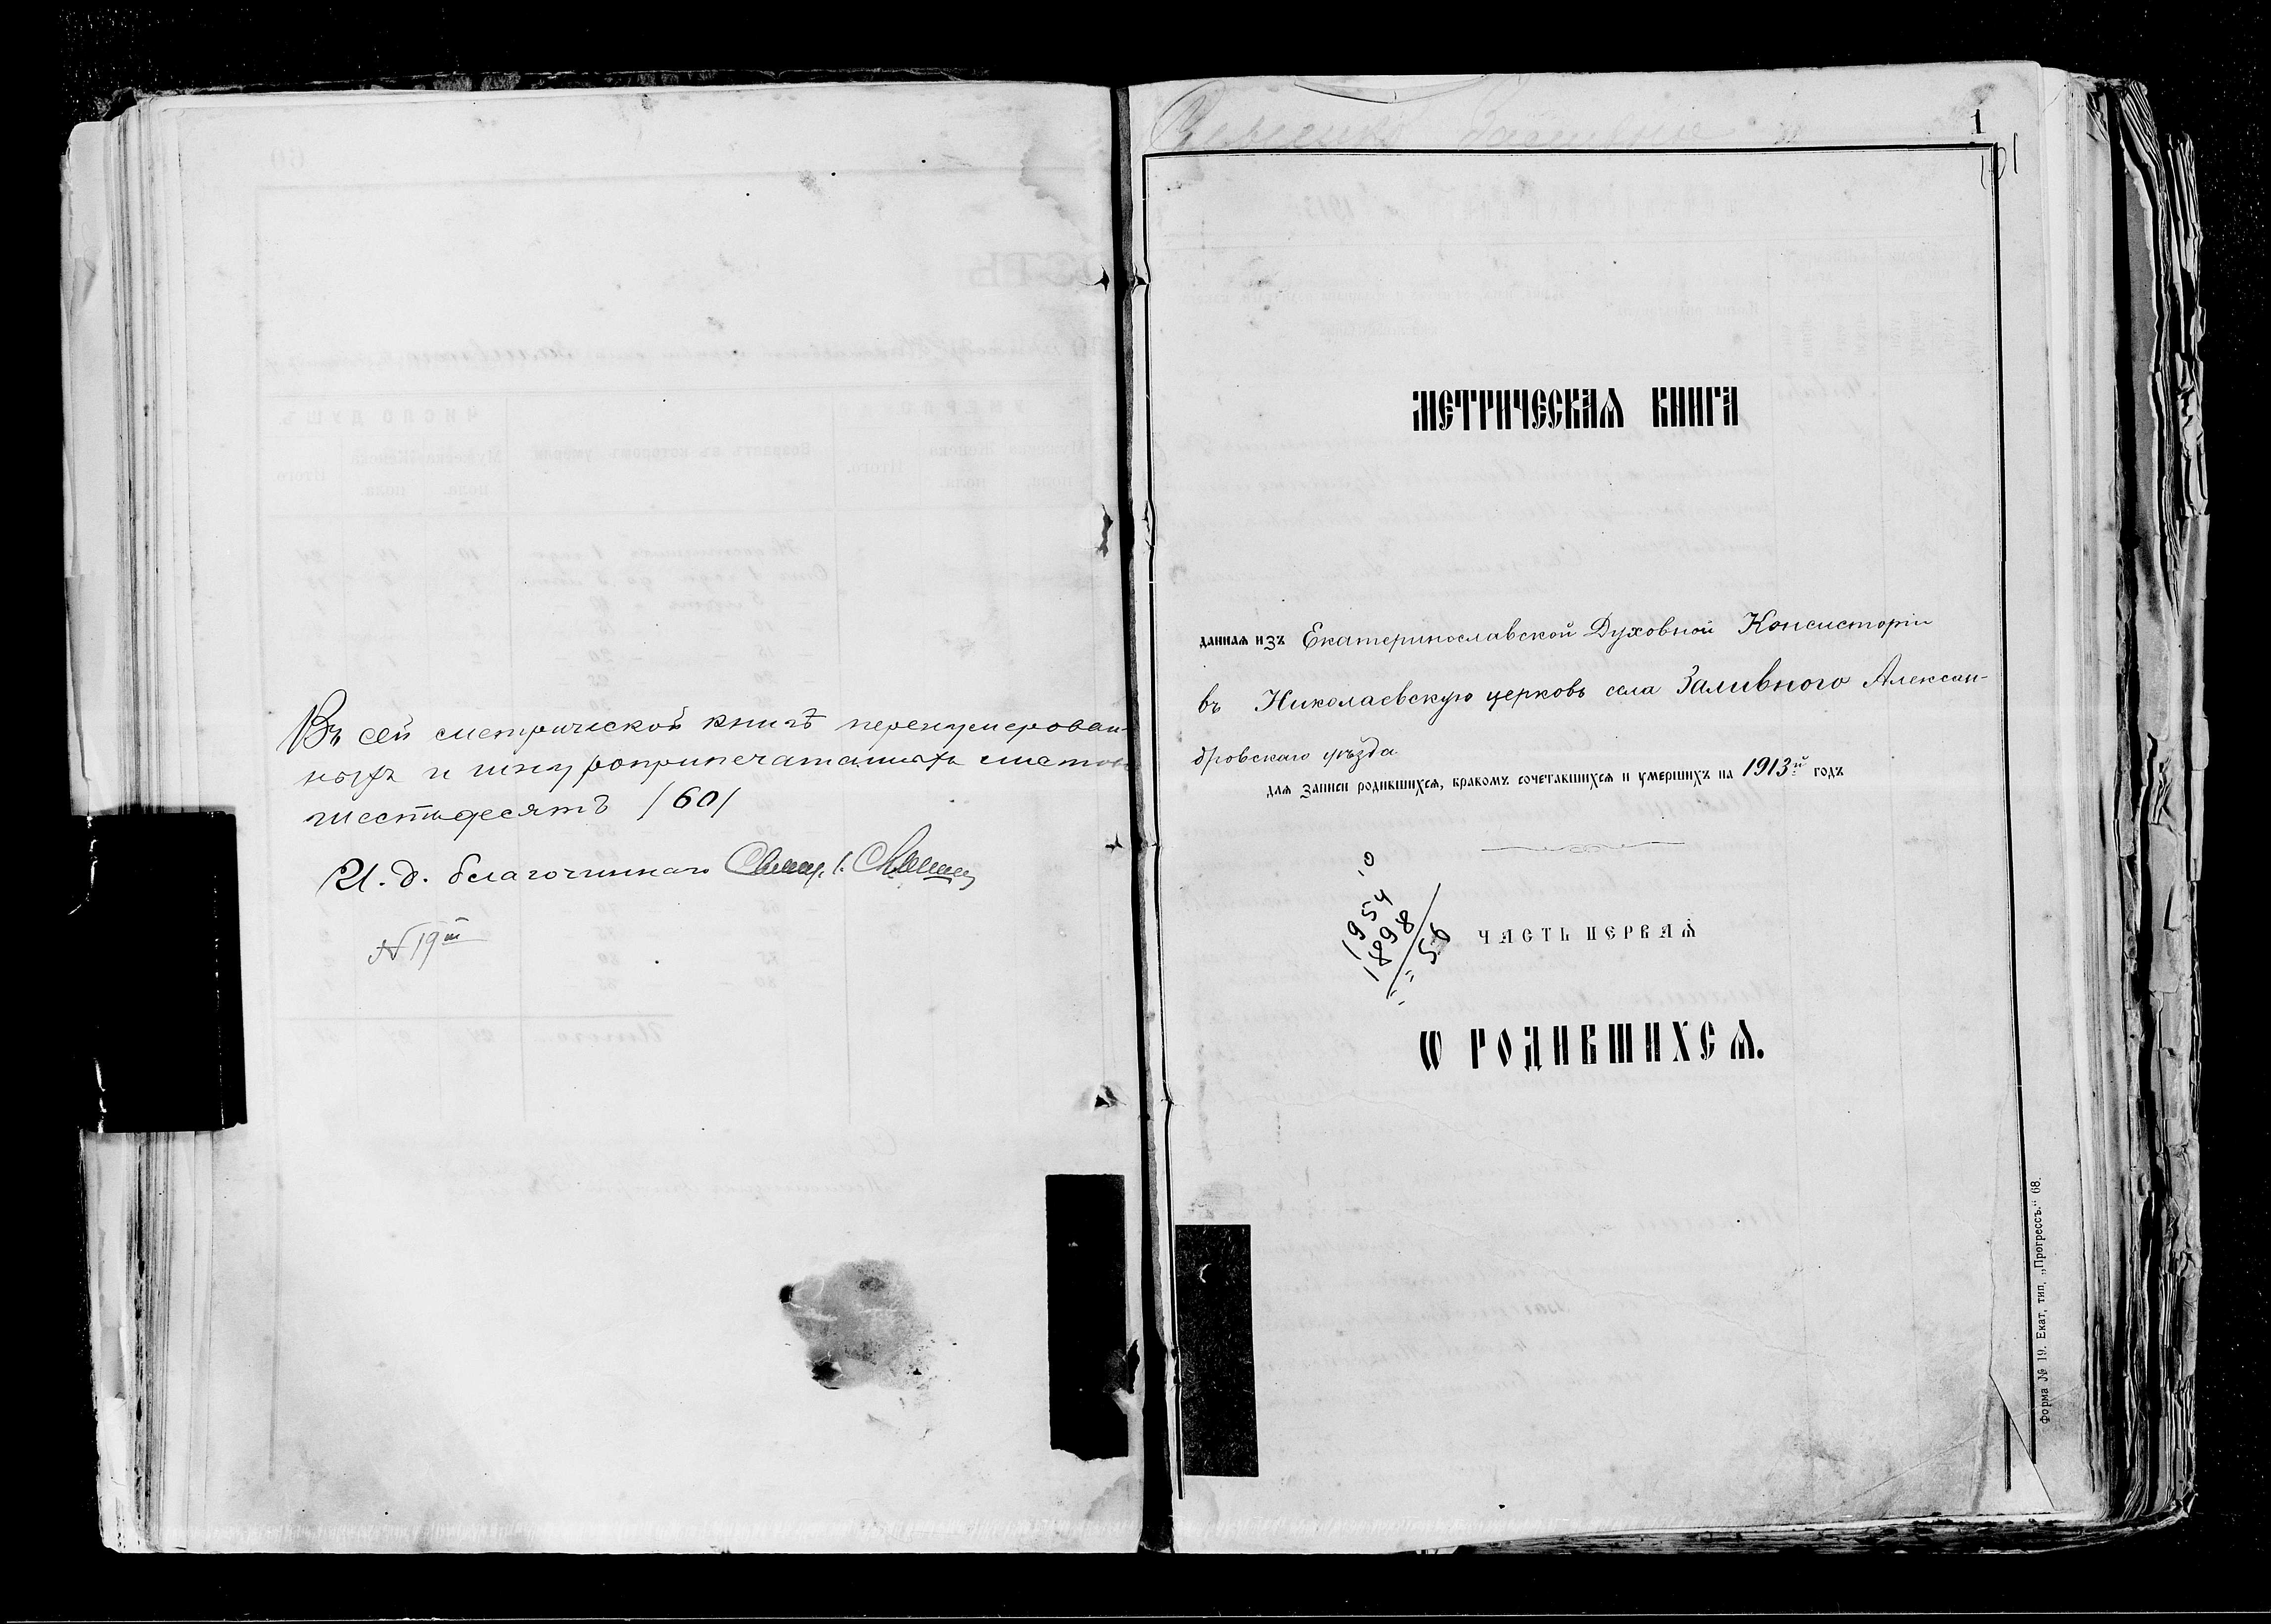 Въ сей метрической книгѣ перенумерован-
ныхъ и шнуроприпечатанныхъ листовъ
шестьдесятъ /60/
И. д. благочиннаго Свящ. І.
№ 19й
1
101
МЕТРИЧЕСКАЯ КНИГА
данная изъ Екатеринославской Духовной Консисторіи
въ Николаевскую церковь села Заливного Алексан-
дровскаго уѣзда
для записи родившихся, бракомъ сочетавшихся и умершихъ на 1913й годъ
1954
1898
56
ЧАСТЬ ПЕРВАЯ
Ѡ РОДИВШИХСЯ.
Форма № 19. Екат, тип. „Прогрессъ." 68.